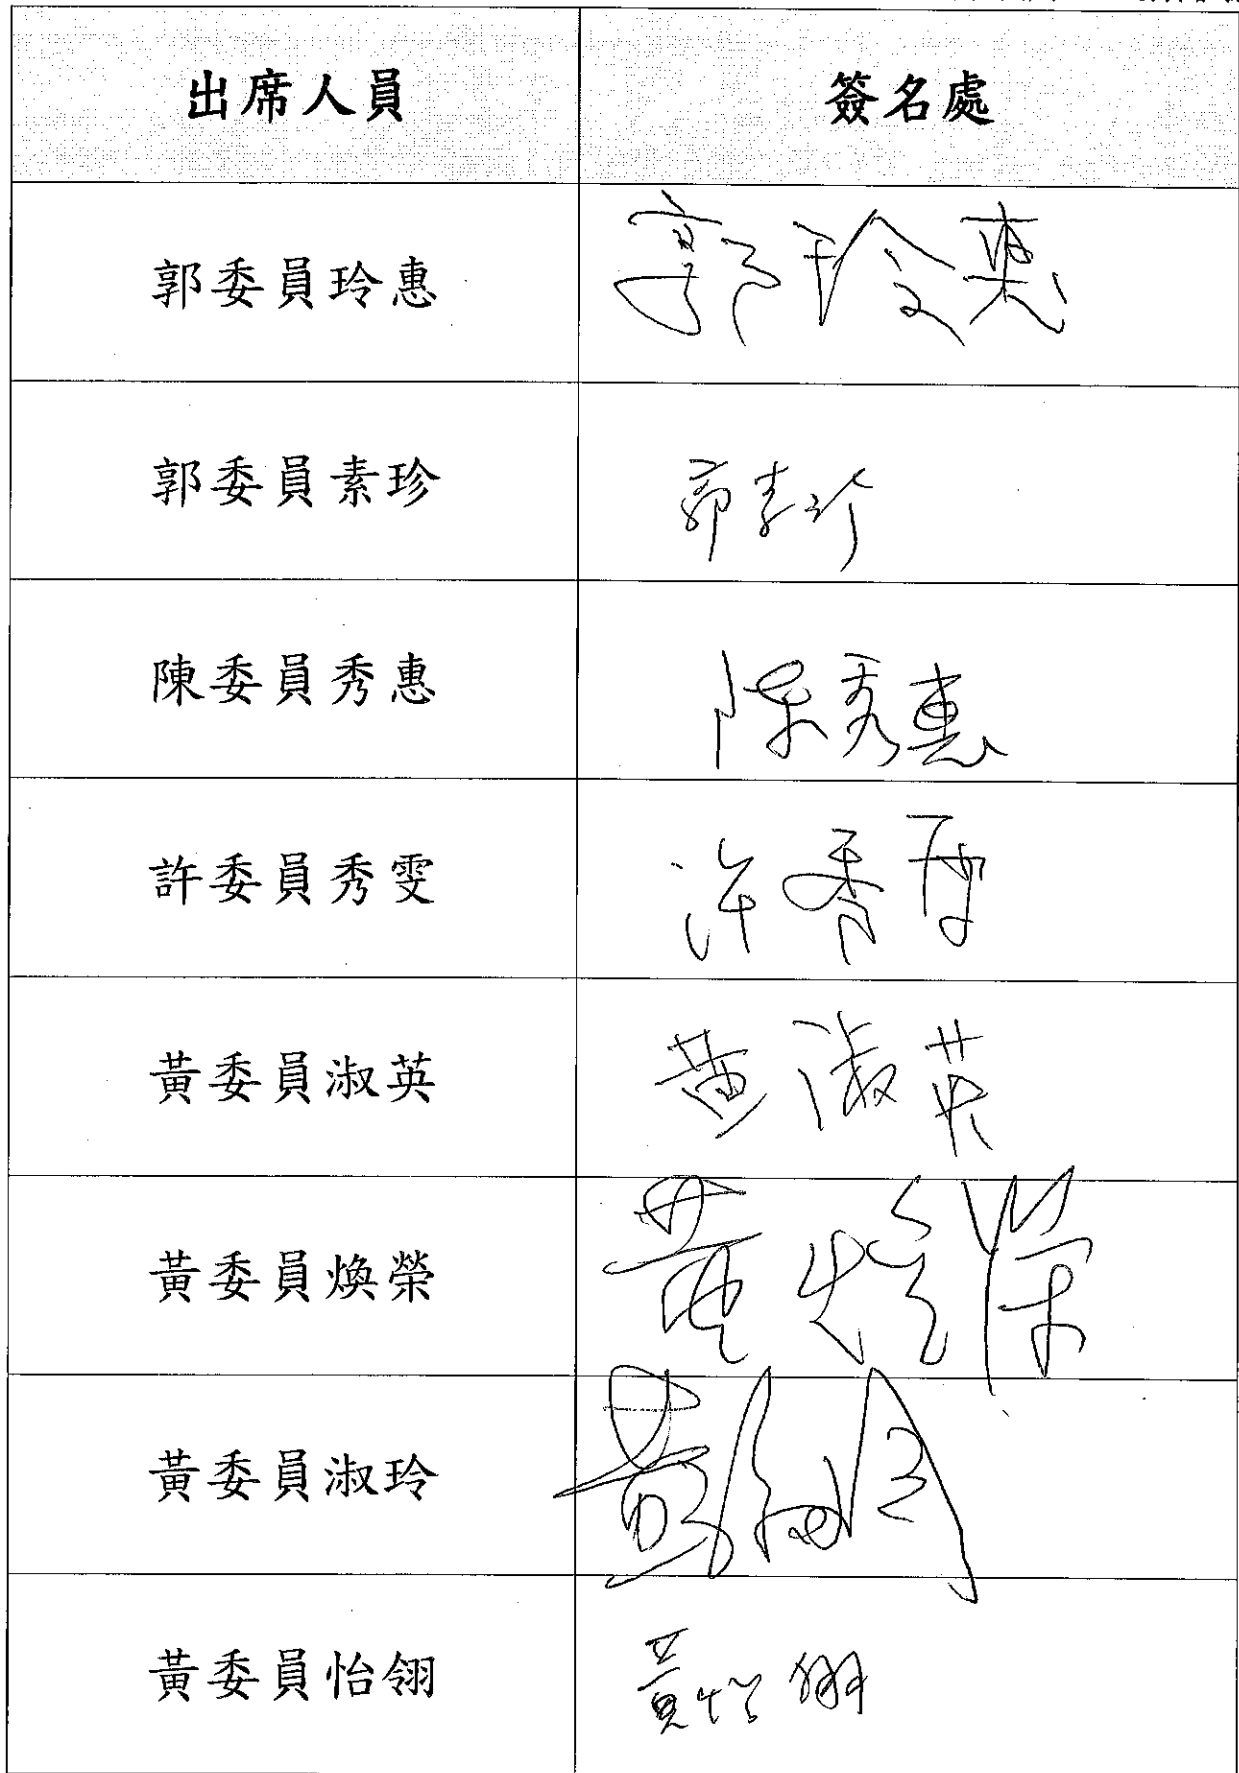 出席人員 簽名處
郭委員玲惠 郭玲惠
郭委員素珍 郭素珍
陳委員秀惠 陳秀惠
許委員秀雯 許秀雯
黃委員淑英 黃淑英
黃委員煥榮 黃煥榮
黃委員淑玲 黃淑玲
黃委員怡翎 黃怡翎